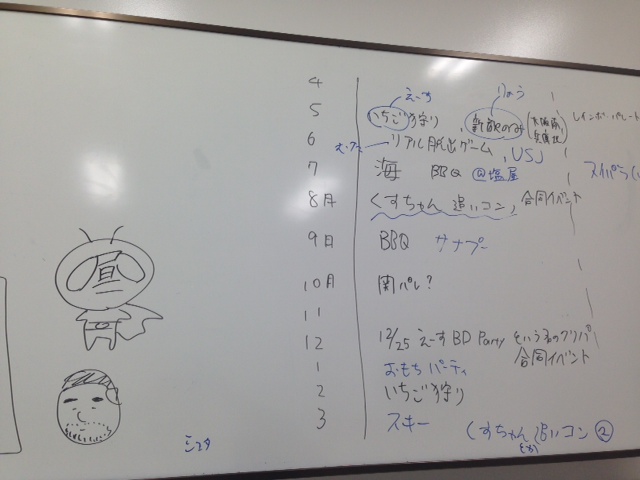 4
えーす りょう
5 いちご狩り、新歓のみ(大阪 レインボーパレード
6 リアル脱出ゲーム、USJ
7 海 BBQ @塩屋
8月 くすちゃん 追いコン、合同イベント
9日 BBQ サナプー
10月 関パレ?
11
12 12/25 えーすBD Party という名のクリパ
合同イベント
1 おもちパーティ
2 いちご狩り
3 スキー くすちゃん追いコン②
昼